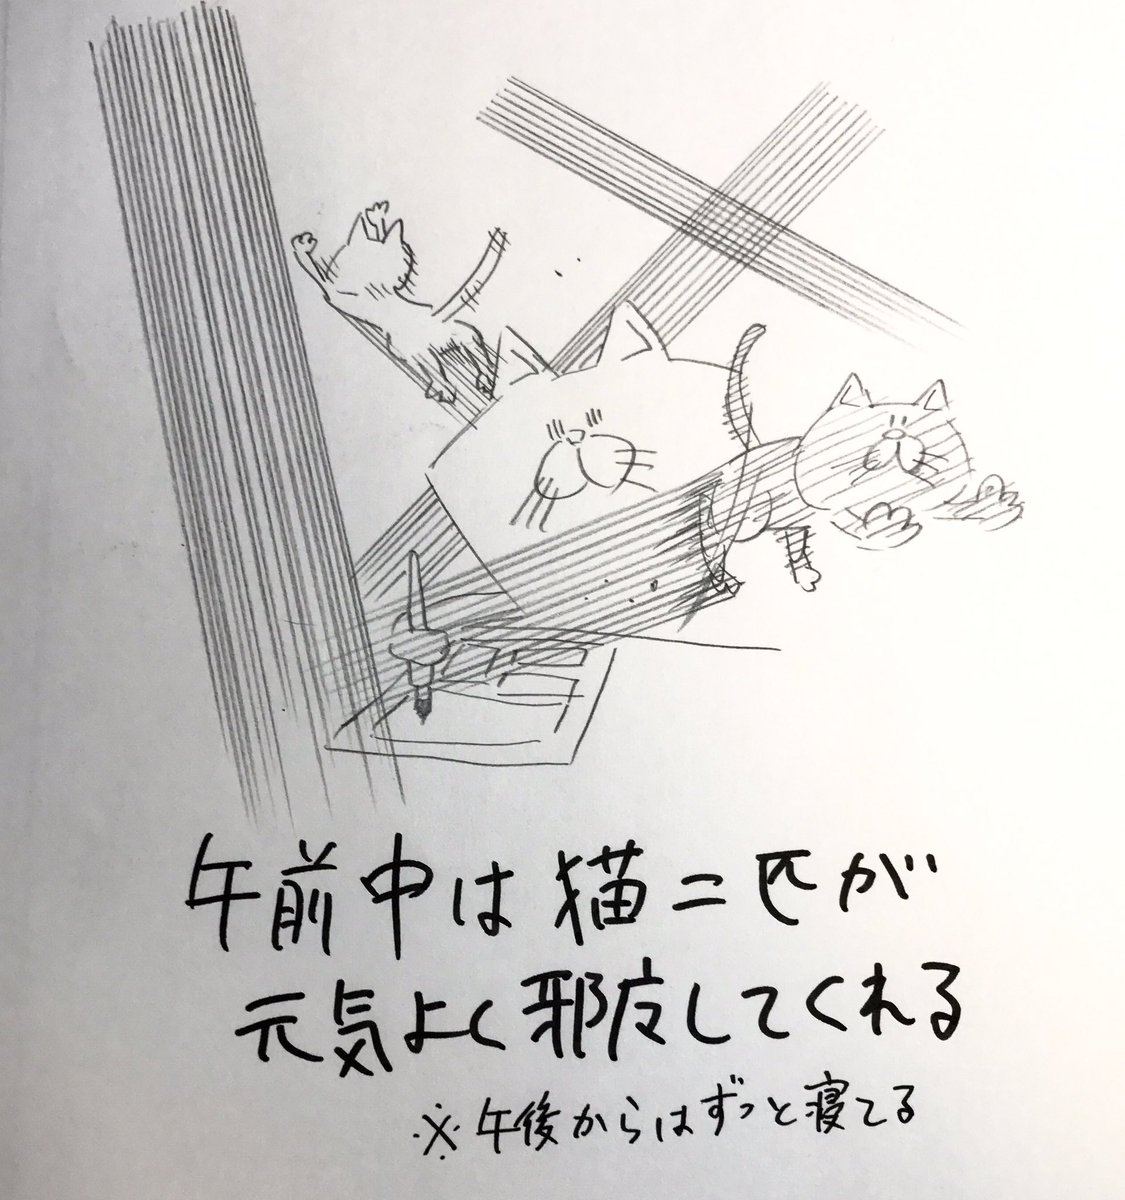 午前中は猫二匹が
元気よく邪魔してくれる
※午後からはずっと寝てる